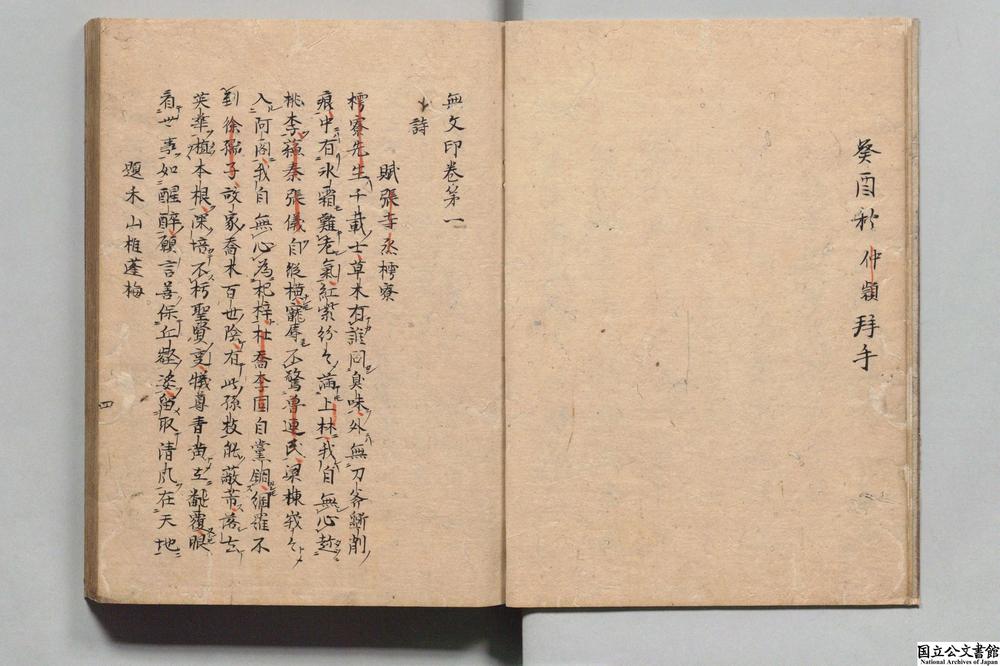 癸酉秋仲頴拜手
無文印卷第一
詩
賦張寺丞樗寮
樗寮先生千載士草木有誰同臭味外無刀斧斲削
痕中有氷霜難老氣紅紫紛々滿上林我自無心趁
桃李蘓秦張儀自縱橫寵辱不驚魯連民梁棟峩々
入阿閣我自無心為杞梓杜喬李固自黨錮網羅不
到徐孺子故家喬木百世陰有此孫枝能蔽芾落其
英華植本根深培不朽聖賢事犧尊青黃立覆眼
看世事如醒醉願言善保丘壑姿留取清風在天地
題木山椎蓬梅
四
国立公文書館
National Archives of Japan